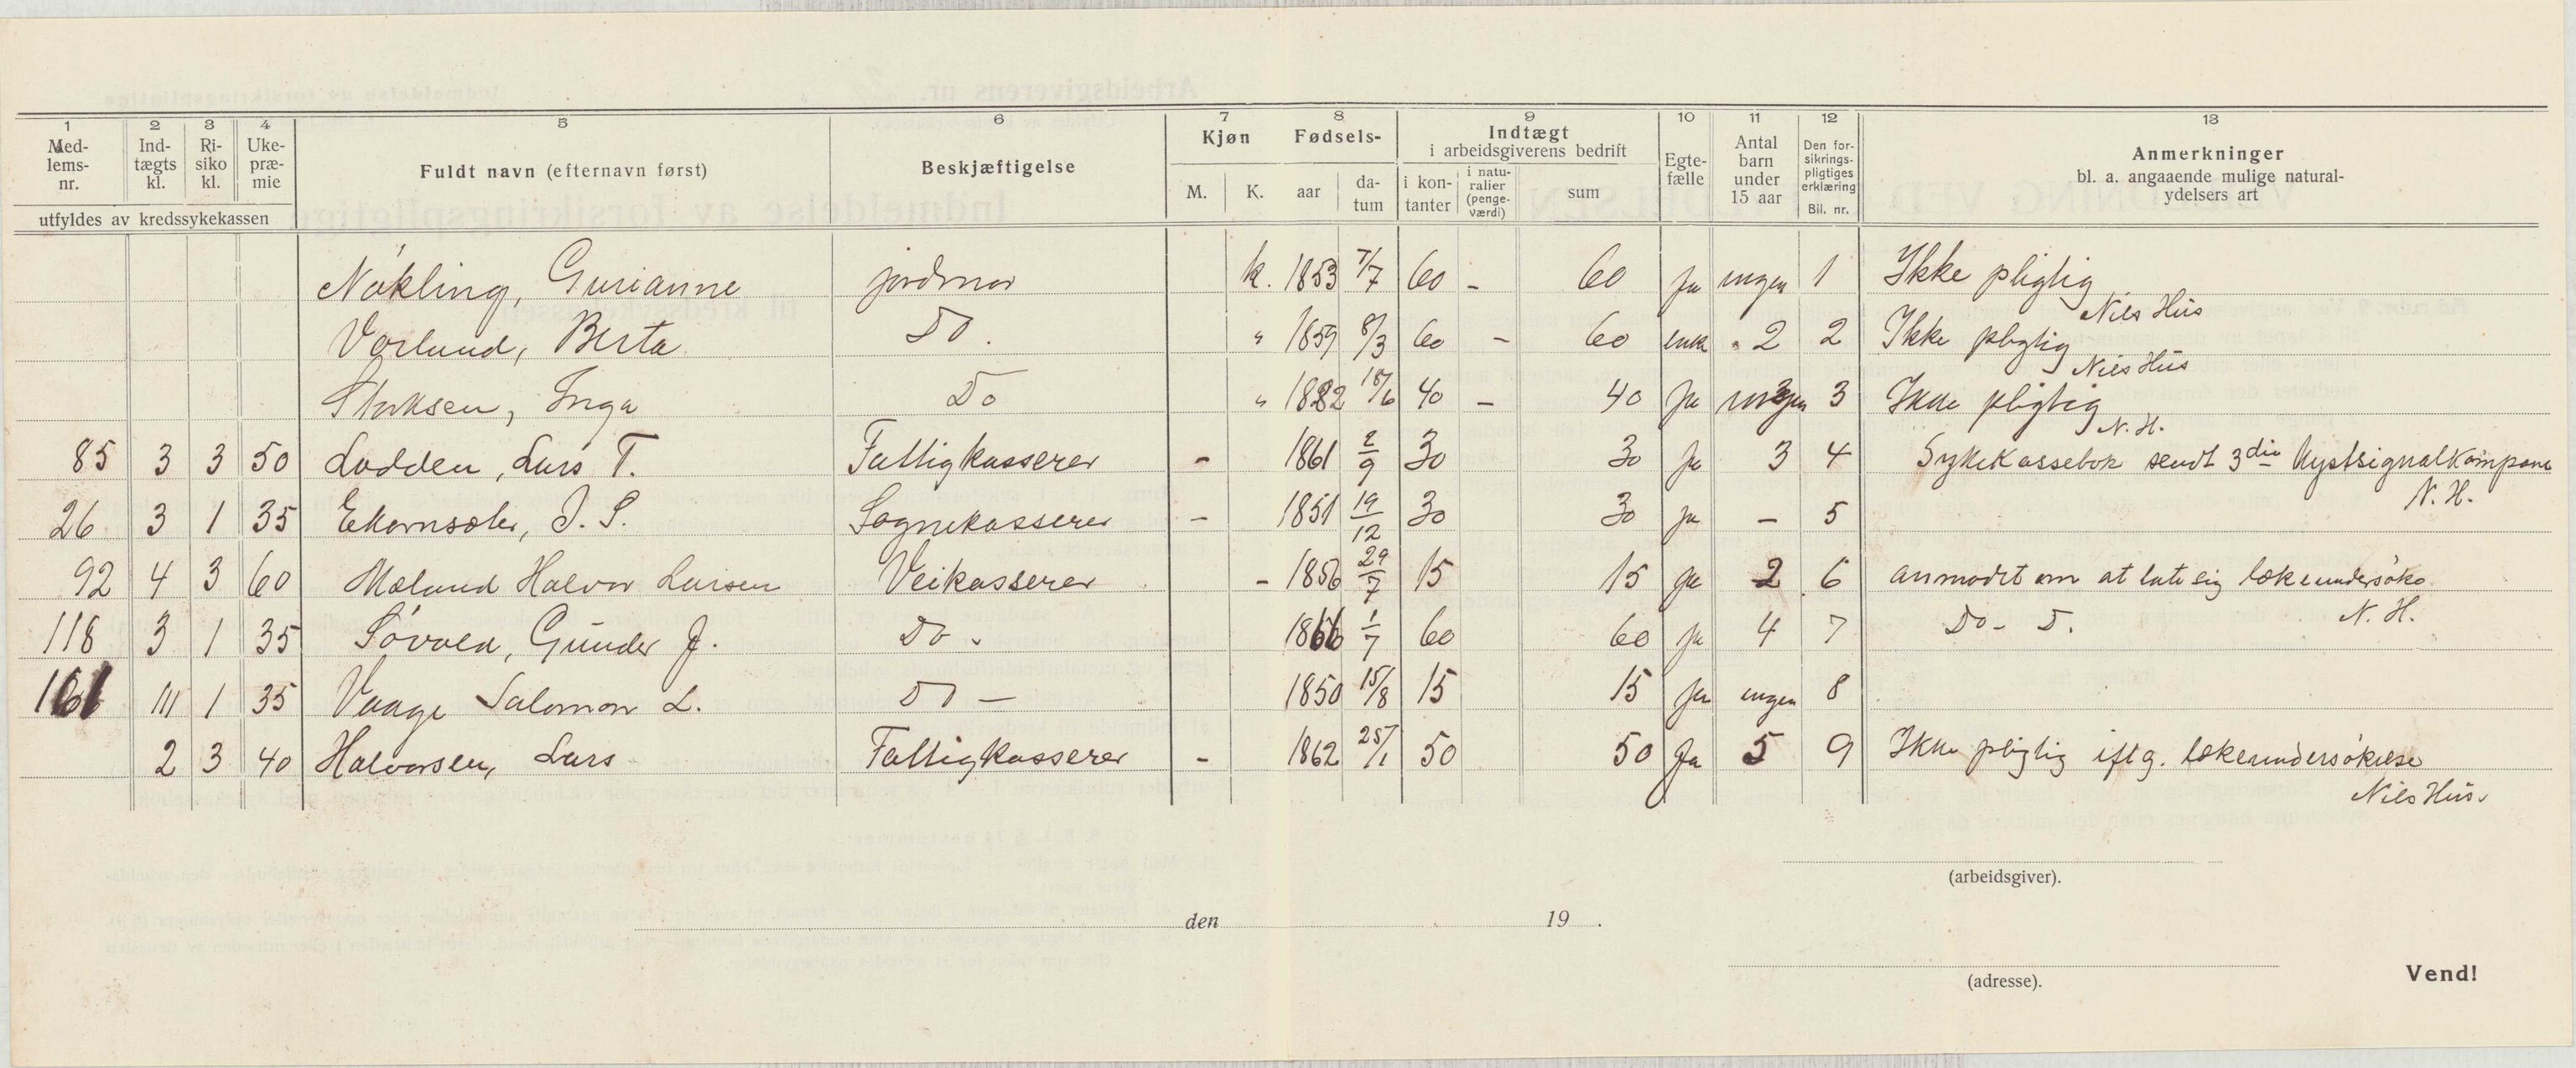 1 2 3 4 5 6 7 8 9 10 11 12 13
Med-lems-nr. Ind-tægts kl. Ri-siko kl. Uke-præ-mie Fuldt navn (efternavn først) Beskjæftigelse Kjøn M. K. Fødsels- aar da-tum Indtægt i arbeidsgiverens bedrift i kon-tanter i natu-ralier (penge-værdi) sum Egte-fælle Antal barn under 15 aar Den for-sikrings-pligtiges erklæring Bil. nr. Anmerkninger bl. a. angaaende mulige natural-ydelsers art
utfyldes av kredssykekassen
Nökling, Gurianne jordmor k. 1853 7/7 60 - 60 ja ingen 1 Ikke pligtig
Nils Hus
Vorlund, Berta Do. " 1859 8/3 60 - 60 enke 2 2 Ikke pligtig
Nils Hus
Inga Do " 1882 18/6 40 - 40 ja 3 Ikke pligtig
N. H.
85 3 3 50 Lodden, Lars T. Fattigkasserer - 1861 2/9 30 30 ja 3 4 Sykekassebok sendt 3die Kystsignalkompani
N. H.
26 3 1 35 J. S. Sognekasserer - 1851 19/12 30 30 ja - 5
92 4 3 60 Mæland Halvor Larsen Veikasserer - 1856 29/7 15 15 ja 2 6 anmodet om at late sig lækeundersöke
N. H.
118 3 1 35 Gunder J. Do - 1866 1/7 60 60 ja 4 7 Do -
161 III 1 35 Vaage Salomon L. Do - 1850 15/8 15 15 ja ingen 8
2 3 40 Halvorsen, Lars Fattigkasserer - 1862 25/1 50 50 Ja 5 9 Ikke pligtig iflg. lækeundersökelse
Nils Hus.
(arbeidsgiver).
den 19 .
(adresse).
Vend!